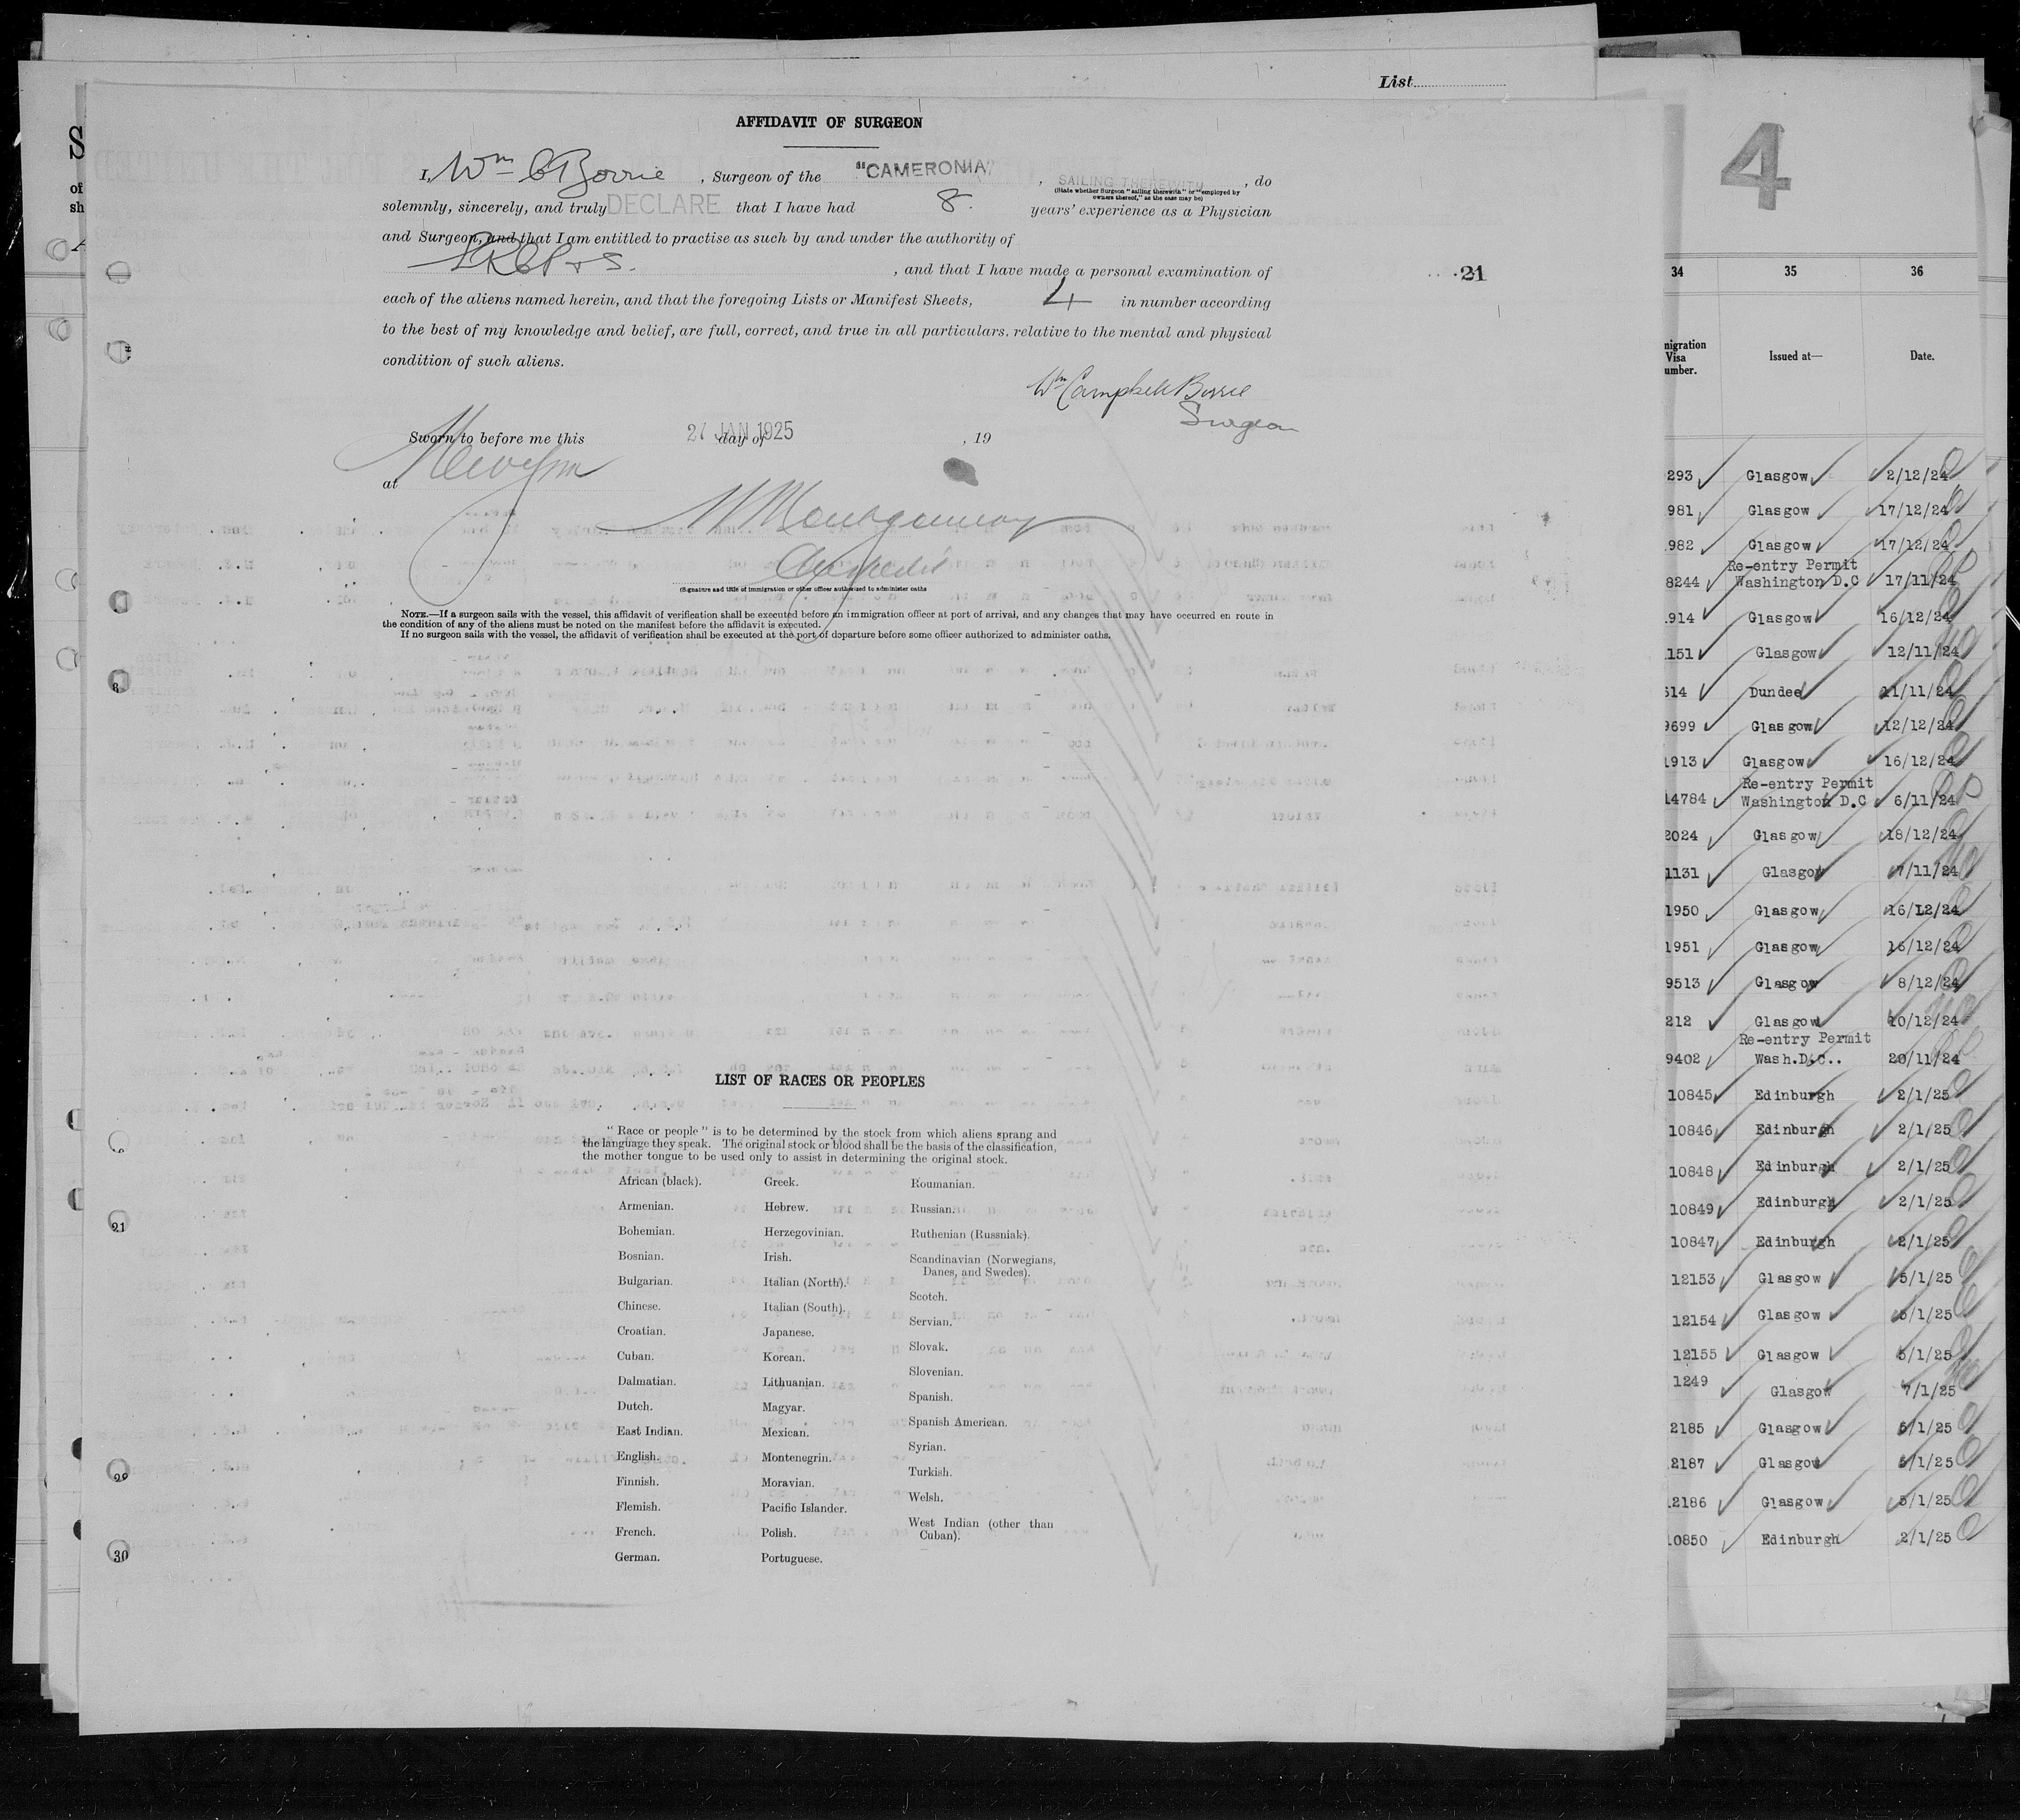 List
AFFIDAVIT OF SURGEON
I, Wm C Borrie, Surgeon of the "CAMERONIA", SAILING THEREWITH, do
(State whether Surgeon "sailing therewith" or "employed by
owners thereof," as the case may be)
solemnly, sincerely, and truly DECLARE that I have had 8 years' experience as a Physician
and Surgeon, and that I am entitled to practise as such by and under the authority of
LRCP&S., and that I have made a personal examination of
each of the aliens named herein, and that the foregoing Lists or Manifest Sheets, 4 in number according
to the best of my knowledge and belief, are full, correct, and true in all particulars. relative to the mental and physical
condition of such aliens.
Wm Campbell Borrie
Surgeon
Sworn to before me this 27 JAN 1925 day of , 19
at
Montgomery
(Signature and title of immigration or other officer authorized to administer oaths
NOTE.—If a surgeon sails with the vessel, this affidavit of verification shall be executed before an immigration officer at port of arrival, and any changes that may have occurred en route in
the condition of any of the aliens must be noted on the manifest before the affidavit is executed.
If no surgeon sails with the vessel, the affidavit of verification shall be executed at the port of departure before some officer authorized to administer oaths.
21
8
21
29
30
LIST OF RACES OR PEOPLES
"Race or people" is to be determined by the stock from which aliens sprang and
the language they speak. The original stock or blood shall be the basis of the classification,
the mother tongue to be used only to assist in determining the original stock.
African (black).
Armenian.
Bohemian.
Bosnian.
Bulgarian.
Chinese.
Croatian.
Cuban.
Dalmatian.
Dutch.
East Indian.
English.
Finnish.
Flemish.
French.
German.
Greek.
Hebrew.
Herzegovinian.
Irish.
Italian (North).
Italian (South).
Japanese.
Korean.
Lithuanian.
Magyar.
Mexican.
Montenegrin.
Moravian.
Pacific Islander.
Polish.
Portuguese.
Roumanian.
Russian.
Ruthenian (Russniak).
Scandinavian (Norwegians,
Danes, and Swedes).
Scotch.
Servian.
Slovak.
Slovenian.
Spanish.
Spanish American.
Syrian.
Turkish.
Welsh.
West Indian (other than
Cuban).
4
34 35 36
migration
Visa
umber.
Issued at—
Date.
293 Glasgow 2/12/24
981 Glasgow 17/12/24
982 Glasgow 17/12/24
Re-entry Permit
8244 Washington D.C 17/11/24
1914 Glasgow 16/12/24
1151 Glasgow 12/11/24
614 Dundee 11/11/24
9699 Glasgow 12/12/24
1913 Glasgow 16/12/24
Re-entry Permit
14784 Washington D.C 6/11/24
2024 Glasgow 18/12/24
1131 Glasgow 7/11/24
1950 Glasgow 16/12/24
1951 Glasgow 16/12/24
9513 Glasgow 8/12/24
212 Glasgow 10/12/24
Re-entry Permit
9402 Wash.D.C.. 20/11/24
10845 Edinburgh 2/1/25
10846 Edinburgh 2/1/25
10848 Edinburgh 2/1/25
10849 Edinburgh 2/1/25
10847 Edinburgh 2/1/25
12153 Glasgow 5/1/25
12154 Glasgow 5/1/25
12155 Glasgow 5/1/25
1249 Glasgow 7/1/25
2185 Glasgow 5/1/25
2187 Glasgow 5/1/25
12186 Glasgow 5/1/25
10850 Edinburgh 2/1/25